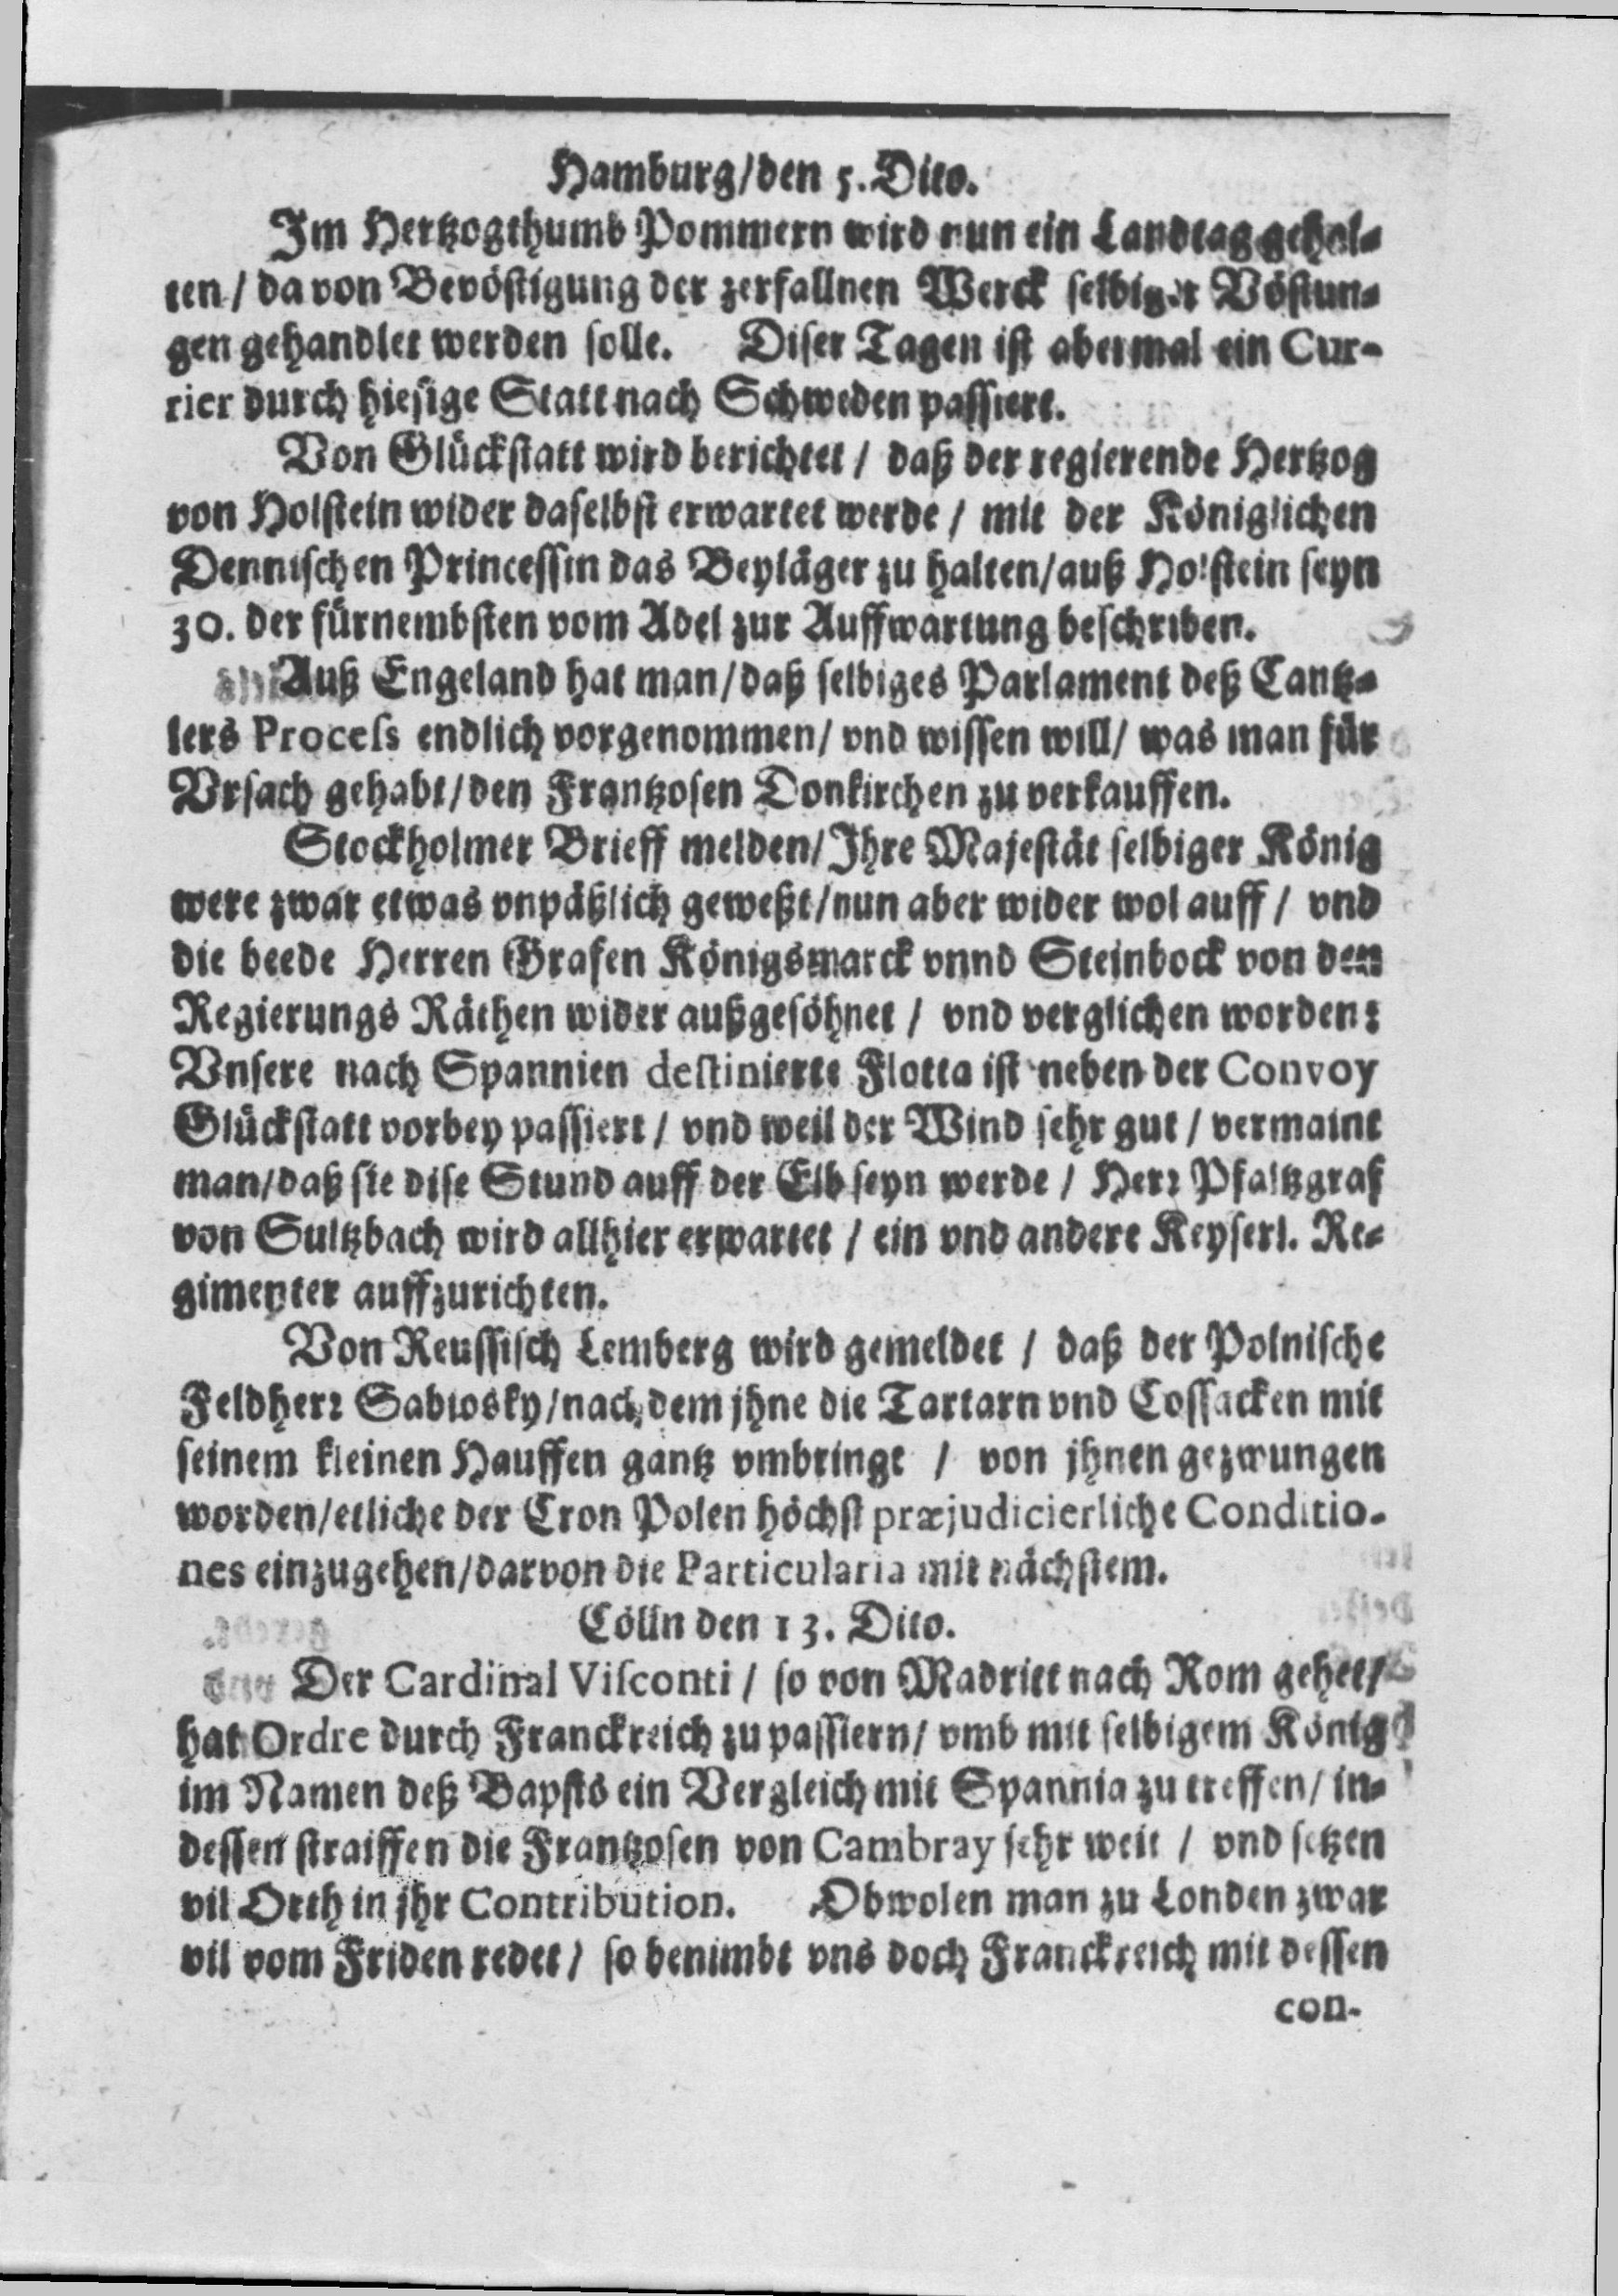 Hamburg/den 5. Dito.
Im Hertzogthumb Pommern wird nun ein Landtag gehal-
ten / da von Bevöstigung der zerfallnen Werck selbiger Vöstun-
gen gehandlet werden solle. Diser Tagen ist abermal ein Cur-
rier durch hiesige Statt nach Schweden passiert.
Von Glückstatt wird berichtet / daß der regierende Hertzog
von Holstein wider daselbst erwartet werde / mit der Königlichen
Dennischen Princessin das Beyläger zu halten/auß Holstein seyn
30. der fürnembsten vom Adel zur Auffwartung beschriben.
Auß Engeland hat man/daß selbiges Parlament deß Cantz-
lers Process endlich vorgenommen/ vnd wissen will/ was man für
Vrsach gehabt/den Frantzosen Donkirchen zu verkauffen.
Stockholmer Brieff melden/Ihre Majestät selbiger König
were zwar etwas vnpäßlich geweßt/nun aber wider wol auff / vnd
die beede Herren Grafen Königsmarck vnnd Steinbock von den
Regierungs Räthen wider außgesöhnet / vnd verglichen worden:
Vnsere nach Spannien destinierte Flotta ist neben der Convoy
Glückstatt vorbey passiert / vnd weil der Wind sehr gut / vermaint
man/daß sie dise Stund auff der Elb seyn werde / Herr Pfaltzgraf
von Sultzbach wird allhier erwartet / ein vnd andere Keyserl. Re-
gimenter auffzurichten.
Von Reussisch Lemberg wird gemeldet / daß der Polnische
Feldherr Sabiosky/nach dem jhne die Tartarn vnd Cossacken mit
seinem kleinen Hauffen gantz vmbringt / von jhnen gezwungen
worden/etliche der Cron Polen höchst præjudicierliche Conditio-
nes einzugehen/darvon die Particularia mit nächstem.
Cölln den 13. Dito.
Der Cardinal Visconti / so von Madritt nach Rom gehet/
hat Ordre durch Franckreich zu passiern/ vmb mit selbigem König
im Namen deß Bapsts ein Vergleich mit Spannia zu treffen/ in-
dessen straiffen die Frantzosen von Cambray sehr weit / vnd setzen
vil Orth in jhr Contribution. Obwolen man zu Londen zwar
vil vom Friden redet / so benimbt vns doch Franckreich mit dessen
con-